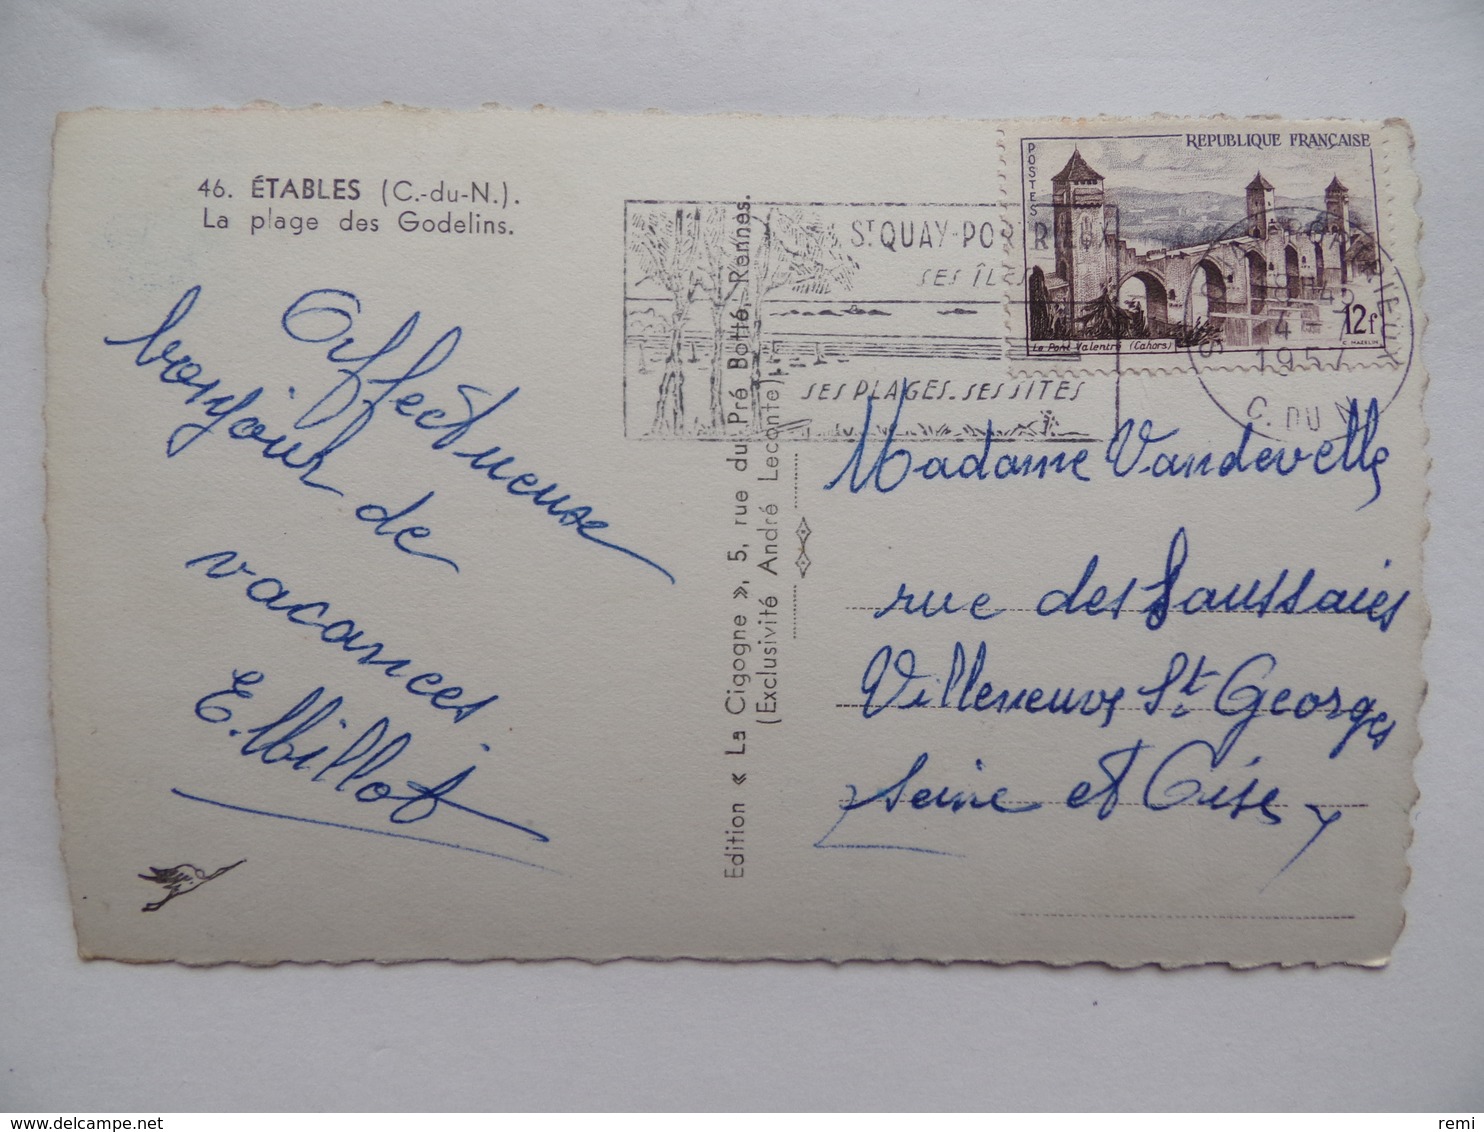 46. ÉTABLES (C.-du-N.).
La plage des Godelins.
Affectueuse
bonjour de
vacances.
E. Millot
Edition « La Cigogne », 5, rue du Pré Botté, Rennes.
(Exclusivité André Leconte)
ST QUAY-PORTRIEUX
SES ÎLES
SES PLAGES. SES SITES
REPUBLIQUE FRANÇAISE
POSTES
Le Pont Valentré (Cahors)
12f
C. MAZELIN
1957
C. DU N
Madame Vandevelle
rue des Saussaies
Villeneuve St Georges
Seine et Oise
remi